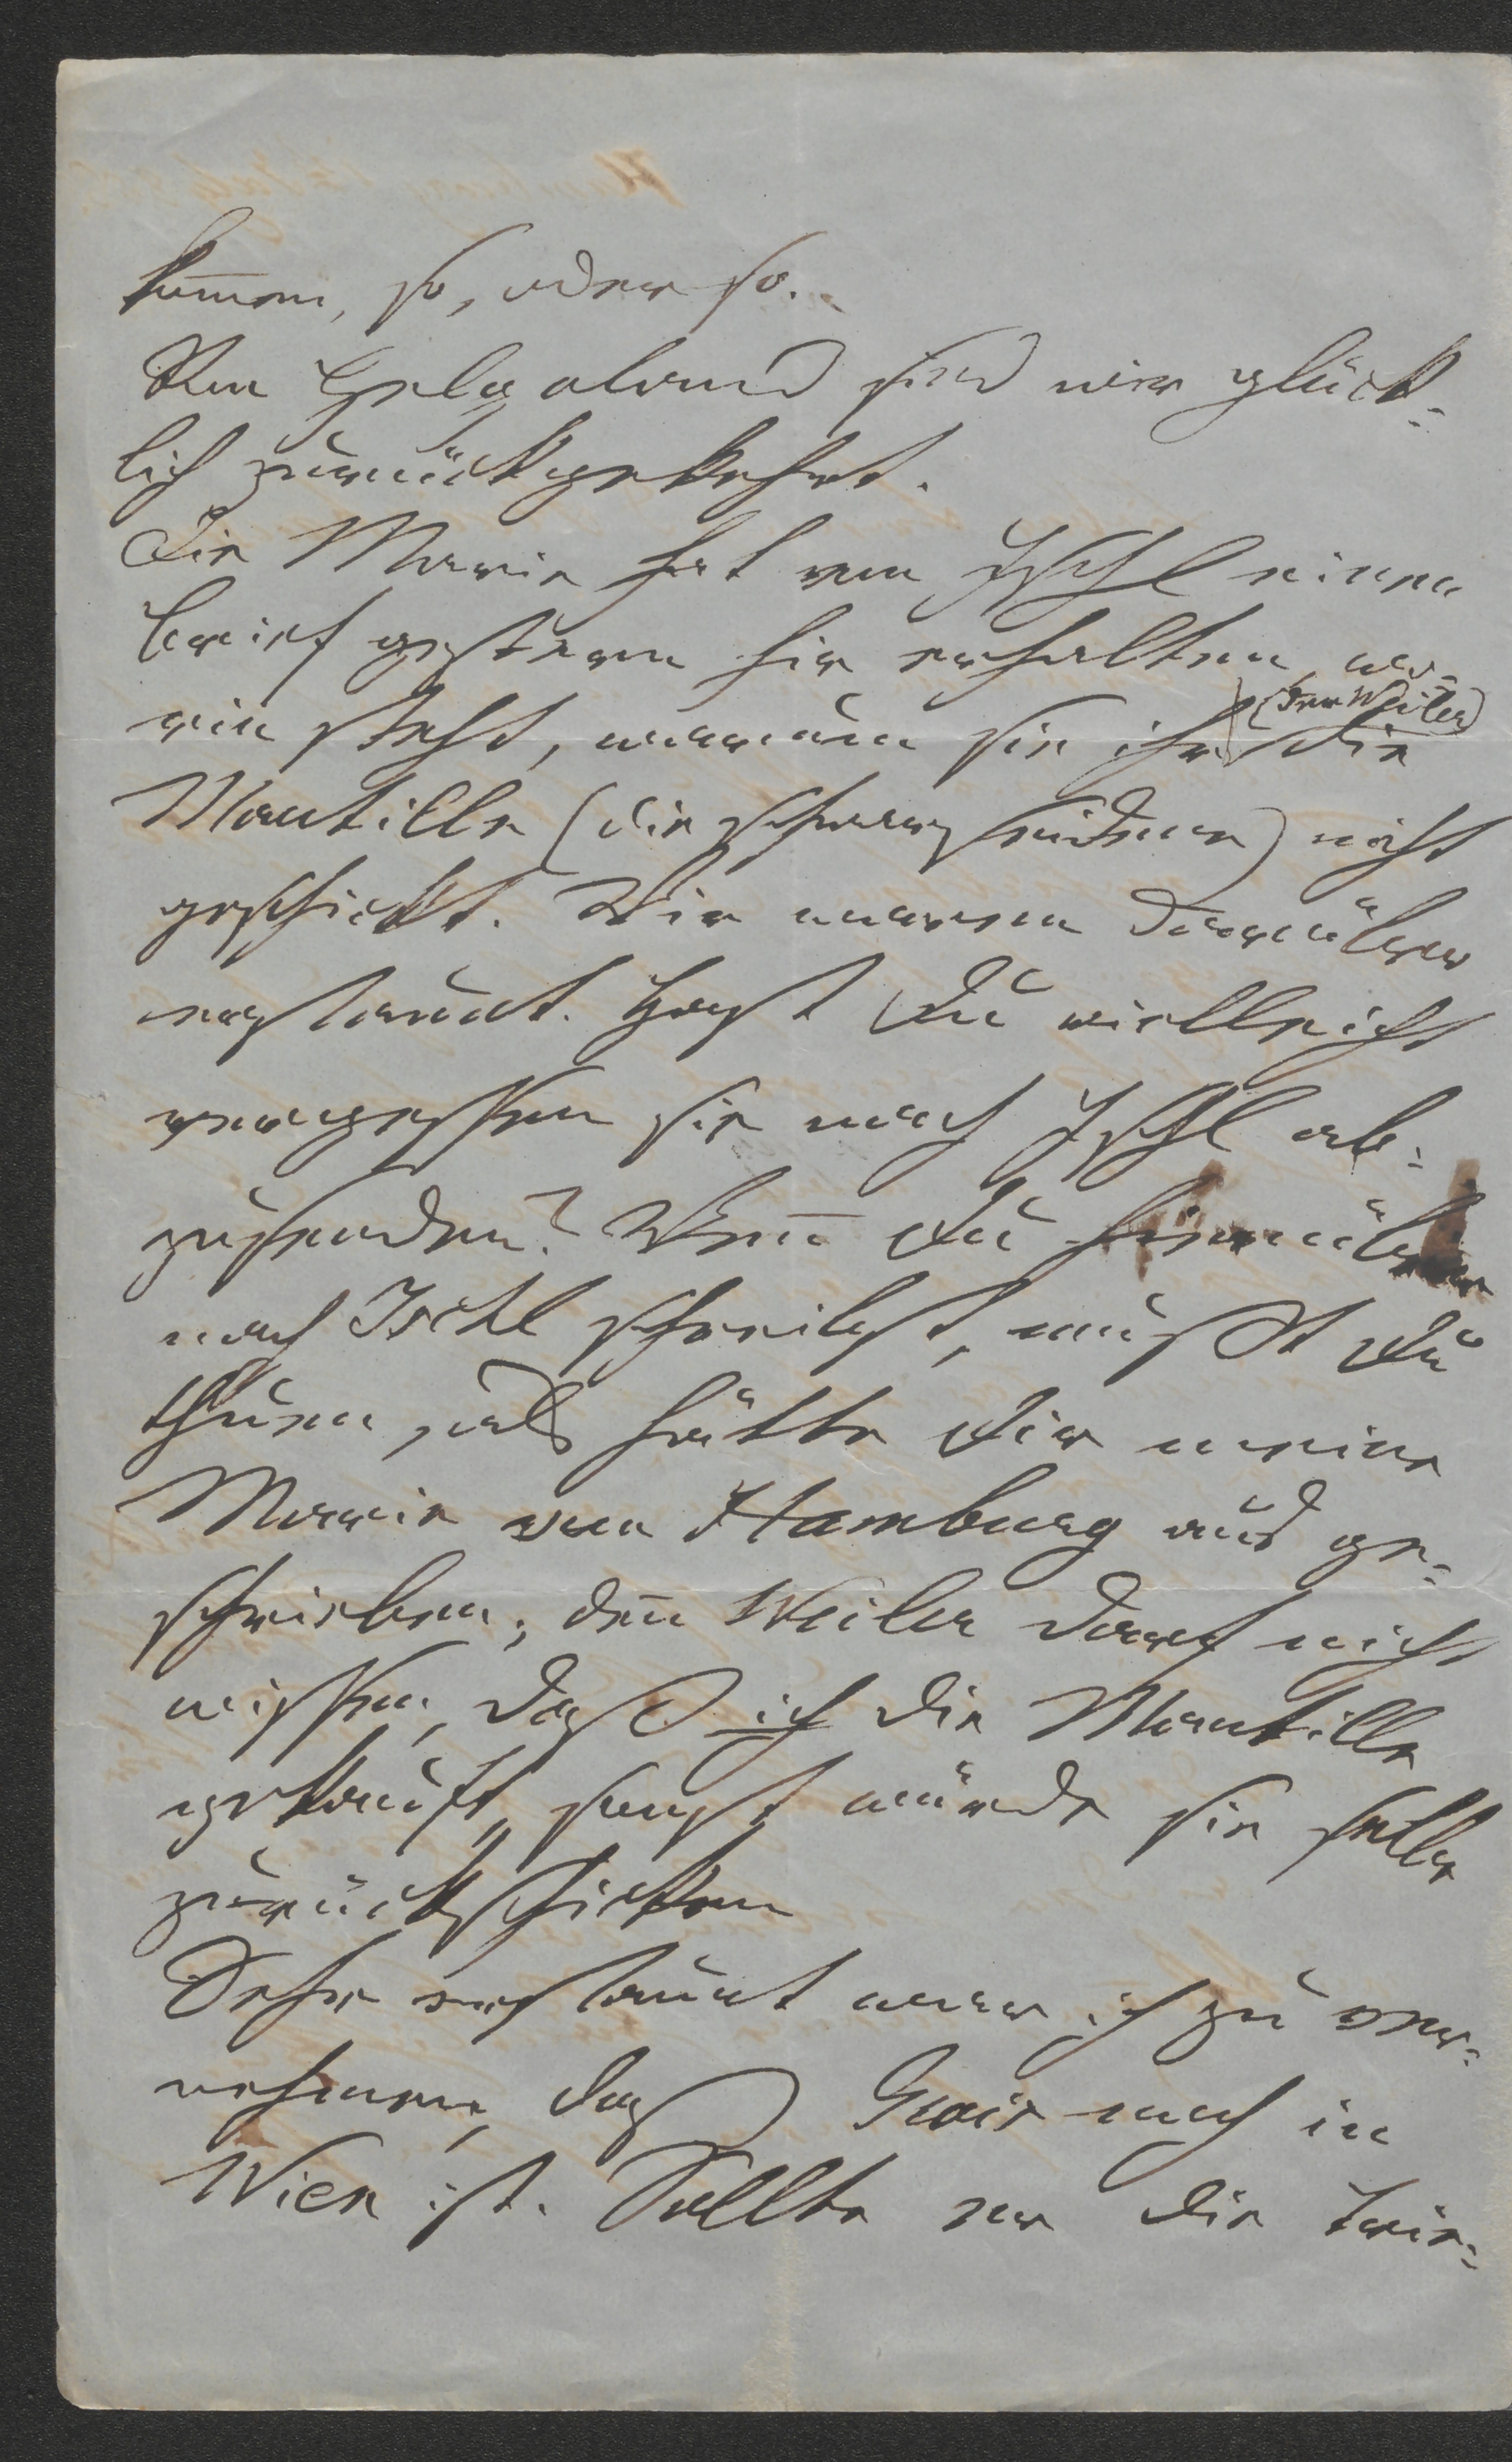 kom̄en, so, oder so.
Von Helgoland sind wir glück-
lich zurückgekehrt.
Die Marie hat von Ischl einen
Brief gestern hir erhalten, wo-
rin steht, warum sie ihr (der Weiler) die
Mantille (die schwarz seidene) nicht
geschickt. Wir waren darüber
erstaunt. Hast Du vielleicht
vergessen sie nach Ischl ab-
zusenden? Wen̄ Du hierüber
nach Ischl schreibst, mußt Du
thuen, als hätte Dir meine
Marie von Hamburg aus ge-
schrieben; den̄ Weiler darf nicht
wissen, daß ich die Mantille
gekauft, sonst würde sie selbe
zurückschicken
Sehr erstaunt war ich zu ver-
nehmen, daß Grois noch in
Wien ist. Sollte er die